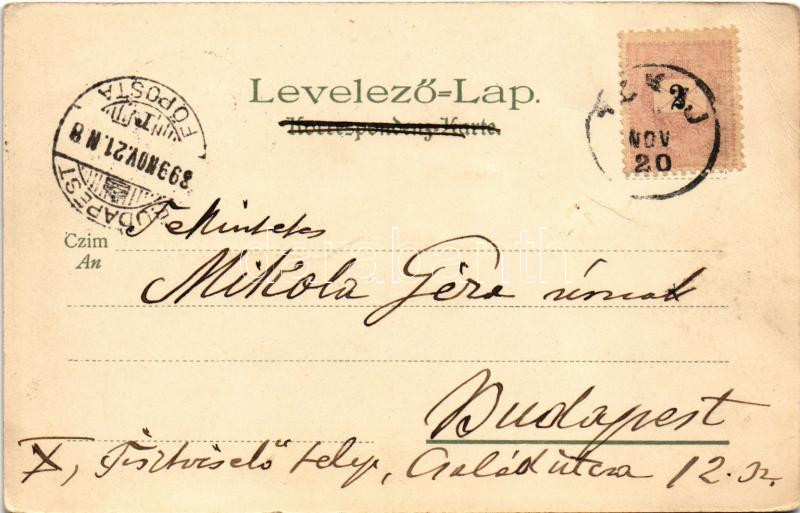 Levelező=Lap.
Korrespondenz-Karte.
2
NOV
20
BUDAPEST
899 NOV. 21. N 8
FŐPOSTA
Czim
An
Tekintetes
Mikola Géza úrnak
Budapest
X, Tisztviselő telep, Család utcza 12. sz.
darabanth